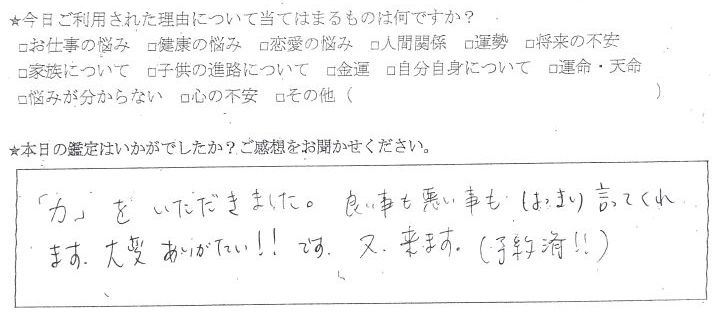 ★今日ご利用された理由について当てはまるものは何ですか？
□お仕事の悩み □健康の悩み □恋愛の悩み □人間関係 □運勢 □将来の不安
□家族について □子供の進路について □金運 □自分自身について □運命・天命
□悩みが分からない □心の不安 □その他（　　　　　　　　　　　　　　　　　　　　）
★本日の鑑定はいかがでしたか？ご感想をお聞かせください。
「力」をいただきました。良い事も悪い事もはっきり言ってくれ
ます。大変ありがたい!!です。又、来ます。(予約済!!)